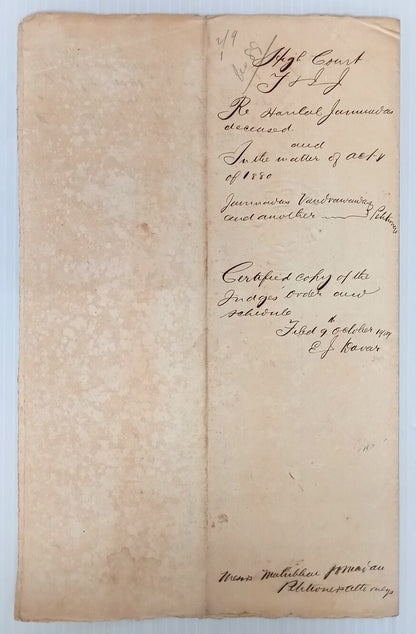 2/9
1
High Court
T & I J
Re Harilal Jamnadas
deceased
and
In the matter of act
of 1880
Jamnadas Vandrawandas
and another Petitioners
Certified copy of the
Judges order and
schedule
Filed 9th October
E J Davar
Messrs
Petitioners attorneys